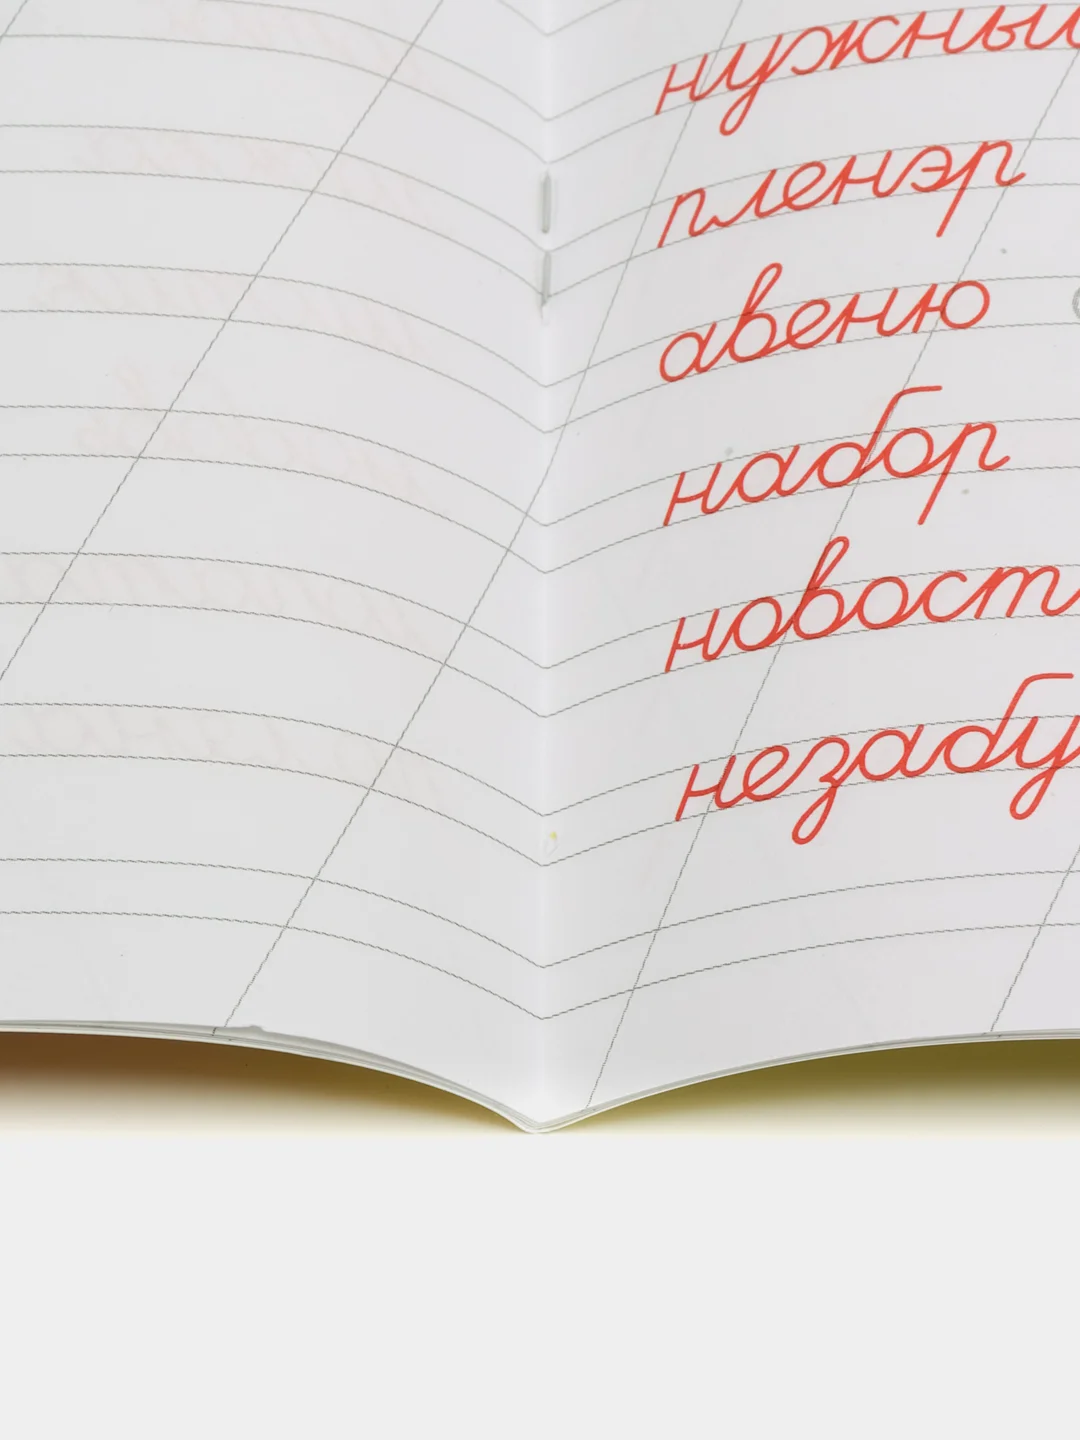 нужный
пленэр
авеню
набор
новост
незабу